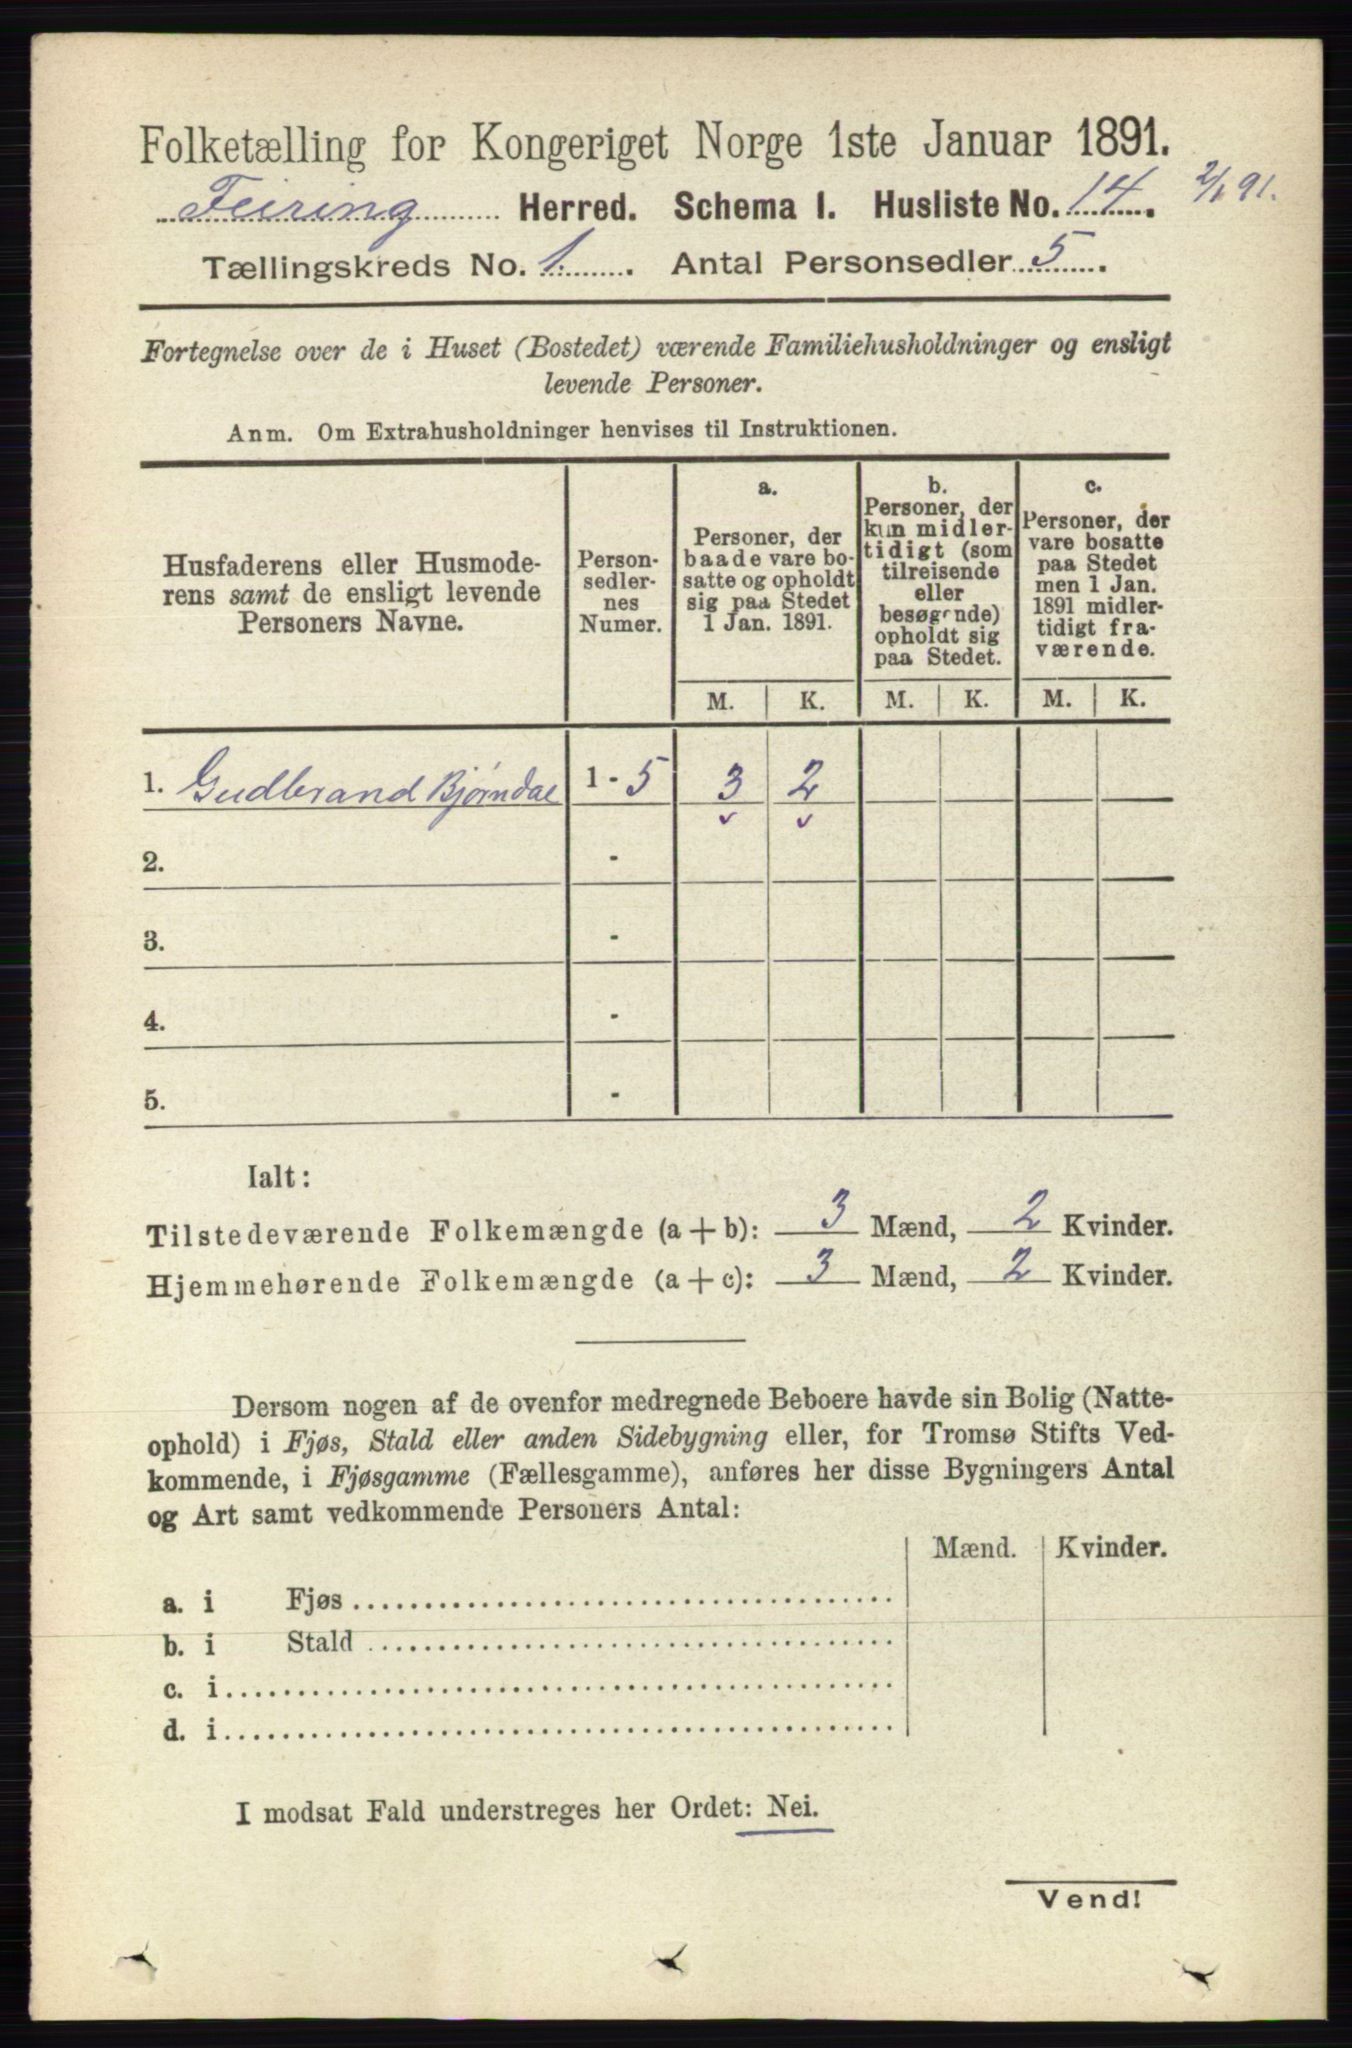 Folketælling for Kongeriget Norge 1ste Januar 1891.
Feiring Herred. Schema I. Husliste No. 14. 2/1 91.
Tællingskreds No. 1. Antal Personsedler 5.
Fortegnelse over de i Huset (Bostedet) værende Familiehusholdninger og ensligt
levende Personer.
Anm. Om Extrahusholdninger henvises til Instruktionen.
Husfaderens eller Husmode-
rens samt de ensligt levende
Personers Navne.
Person-
sedler-
nes
Numer.
a.
Personer, der
baade vare bo-
satte og opholdt
sig paa Stedet
1 Jan. 1891.
b.
Personer, der
kun midler-
tidigt (som
tilreisende
eller
besøgende)
opholdt sig
paa Stedet.
c.
Personer, der
vare bosatte
paa Stedet
men 1 Jan.
1891 midler-
tidigt fra-
værende.
M. K. M. K. M. K.
1. Gudbrand Bjørndal 1 - 5 3 2
2. -
3. -
4. -
5. -
Ialt:
Tilstedeværende Folkemængde (a + b): 3 Mænd, 2 Kvinder.
Hjemmehørende Folkemængde (a + c): 3 Mænd, 2 Kvinder.
Dersom nogen af de ovenfor medregnede Beboere havde sin Bolig (Natte-
ophold) i Fjøs, Stald eller anden Sidebygning eller, for Tromsø Stifts Ved-
kommende, i Fjøsgamme (Fællesgamme), anføres her disse Bygningers Antal
og Art samt vedkommende Personers Antal:
Mænd. Kvinder.
a. i Fjøs
b. i Stald
c. i
d. i
I modsat Fald understreges her Ordet: Nei.
Vend!